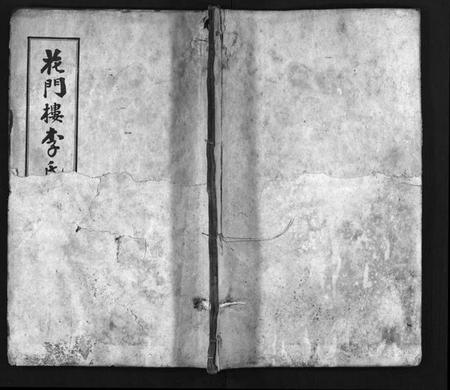 花門樓李氏